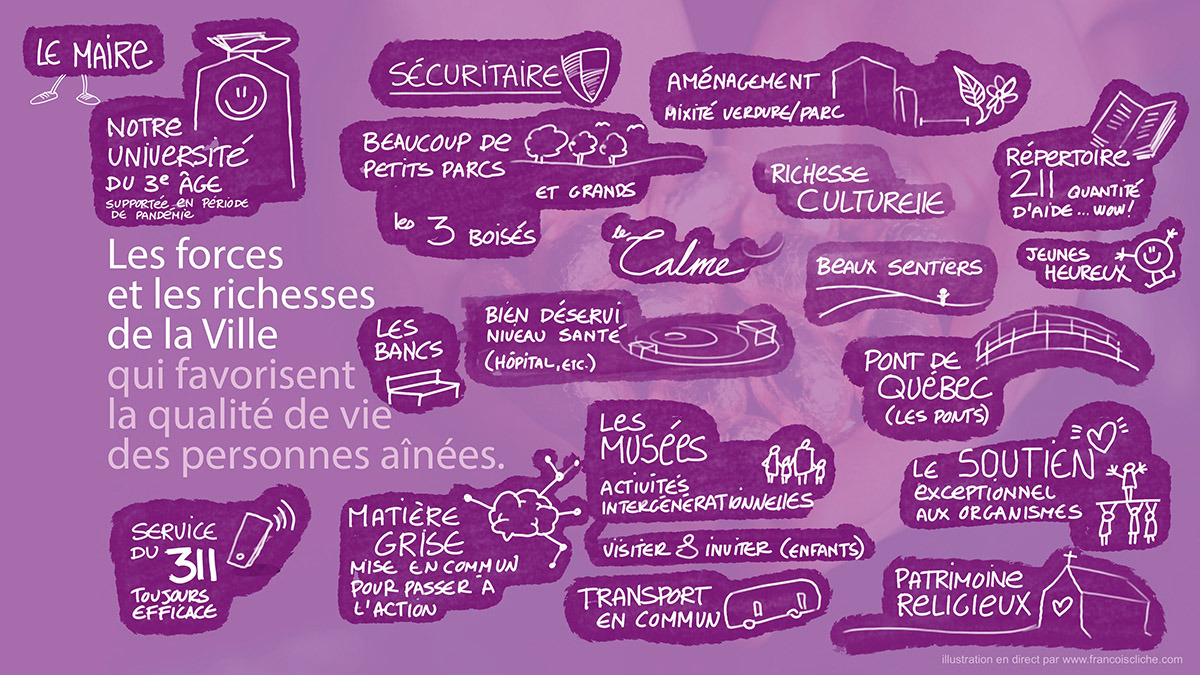 LE MAIRE
NOTRE
UNIVERSITÉ
DU 3e ÂGE
SUPPORTÉE EN PÉRIODE
DE PANDÉMIE
Les forces
et les richesses
de la Ville
qui favorisent
la qualité de vie
des personnes aînées.
SERVICE
DU 311
TOUJOURS
EFFICACE
SÉCURITAIRE
BEAUCOUP DE
PETITS PARCS
ET GRANDS
les 3 BOISÉS
AMÉNAGEMENT
MIXITÉ VERDURE/PARC
RICHESSE
CULTURELLE
RÉPERTOIRE
211 QUANTITÉ
D'AIDE... WOW!
le Calme
BEAUX SENTIERS
JEUNES
HEUREUX
LES
BANCS
BIEN DÉSERVI
NIVEAU SANTÉ
(HÔPITAL, ETC.)
PONT DE
QUÉBEC
(LES PONTS)
LES
MUSÉES
ACTIVITÉS
INTERGÉNÉRATIONNELLES
VISITER & INVITER (ENFANTS)
LE SOUTIEN
EXCEPTIONNEL
AUX ORGANISMES
MATIÈRE
GRISE
MISE EN COMMUN
POUR PASSER À
L'ACTION
TRANSPORT
EN COMMUN
PATRIMOINE
RELIGIEUX
illustration en direct par www.francoiscliche.com